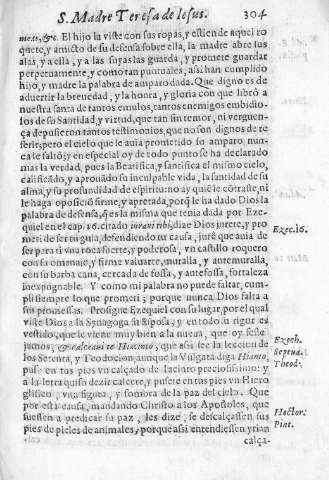 S. Madre Teresa de Iesus. 304
meus, &c. El hijo la viste con sus ropas, y estiendele aquel ro
quete, y amicto de su defensa sobre ella, la madre abre sus
alas, y a ella, y a las suyas las guarda, y promete guardar
perpetuamente, y como tan puntuales, assi han cumplido
hijo, y madre la palabra de ampararla. Que digno es de
aduertir la breuedad, y la honra, y gloria con que libró a
nuestra santa de tantos emulos, tantos enemigos embidio-
los de su Santidad, y virtud, que tan sin temor, ni verguen-
ça depusieron tantos testimonios, que no son dignos de re
ferir, pero el cielo que le auia prometido su amparo, nunca
le faltó; y en especial oy de todo punto se ha declarado
mas la verdad, pues la Beatifica, y santifica el mismo cielo,
calificado, y aprouado su inculpable vida, la santidad de su
alma, y su profundidad de espiritu: no ay quie le cōtraste, ni
le haga oposició firme, y apretada, porq̃ le ha dado Dios la
palabra de defensa, q̃ es la misma que tenia dada por Eze-
quiel en el cap. 16. citado iuraui tibi, dize Dios, jurete, y pro
meti de ser tu guia, defendiendo tu causa, juré que auia de
ser para ti vna roca fuerte, y poderosa, vn castillo roquero
con su omenaje, y firme valuarte, muralla, y antemuralla,
con su barba cana, cercada de fossa, y antefossa, fortaleza
inexpugnable. Y como mi palabra no puede faltar, cum-
pli siempre lo que prometi; porque nunca Dios falta a
sus promessas. Prosigue Ezequiel con su lugar, por el qual
viste Dios a la Synagoga su Esposa, y en todo su rigor es
vestido, que le viene muy bien a la nuestra, que oy feste
jamos, & calceaui te Hiacinto, que assi lee la leccion de
los Setenta, y Teodocion, aunque la Vulgata diga Hianto,
puse en tus pies vn calçado de Iacinto preciosissimo: y
a la letra quiso dezir calcete, y pusete en tus pies vn Hiero
glifico, viua figura, y sombra de la paz del cielo. Que
por esta causa, mandando Christo a los Apostoles, que
fuessen a predicar su paz, les dize, se descalçassen sus
pies de pieles de animales, porque assi entendiessen yrian
calça-
Ezec. 16.
Ezech.
Septua.
Theod.
Hector
Pint.